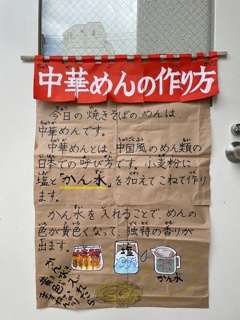 中華めんの作り方
今日の焼きそばのめんは
中華めんです。
中華めんとは、中国風のめん類の
日本での呼び方です。小麦粉に
塩と"かん水"を加えてこねて作り
ます。
かん水を入れることで、めんの
色が黄色くなって、独特の香りが
出ます。
塩
かん水